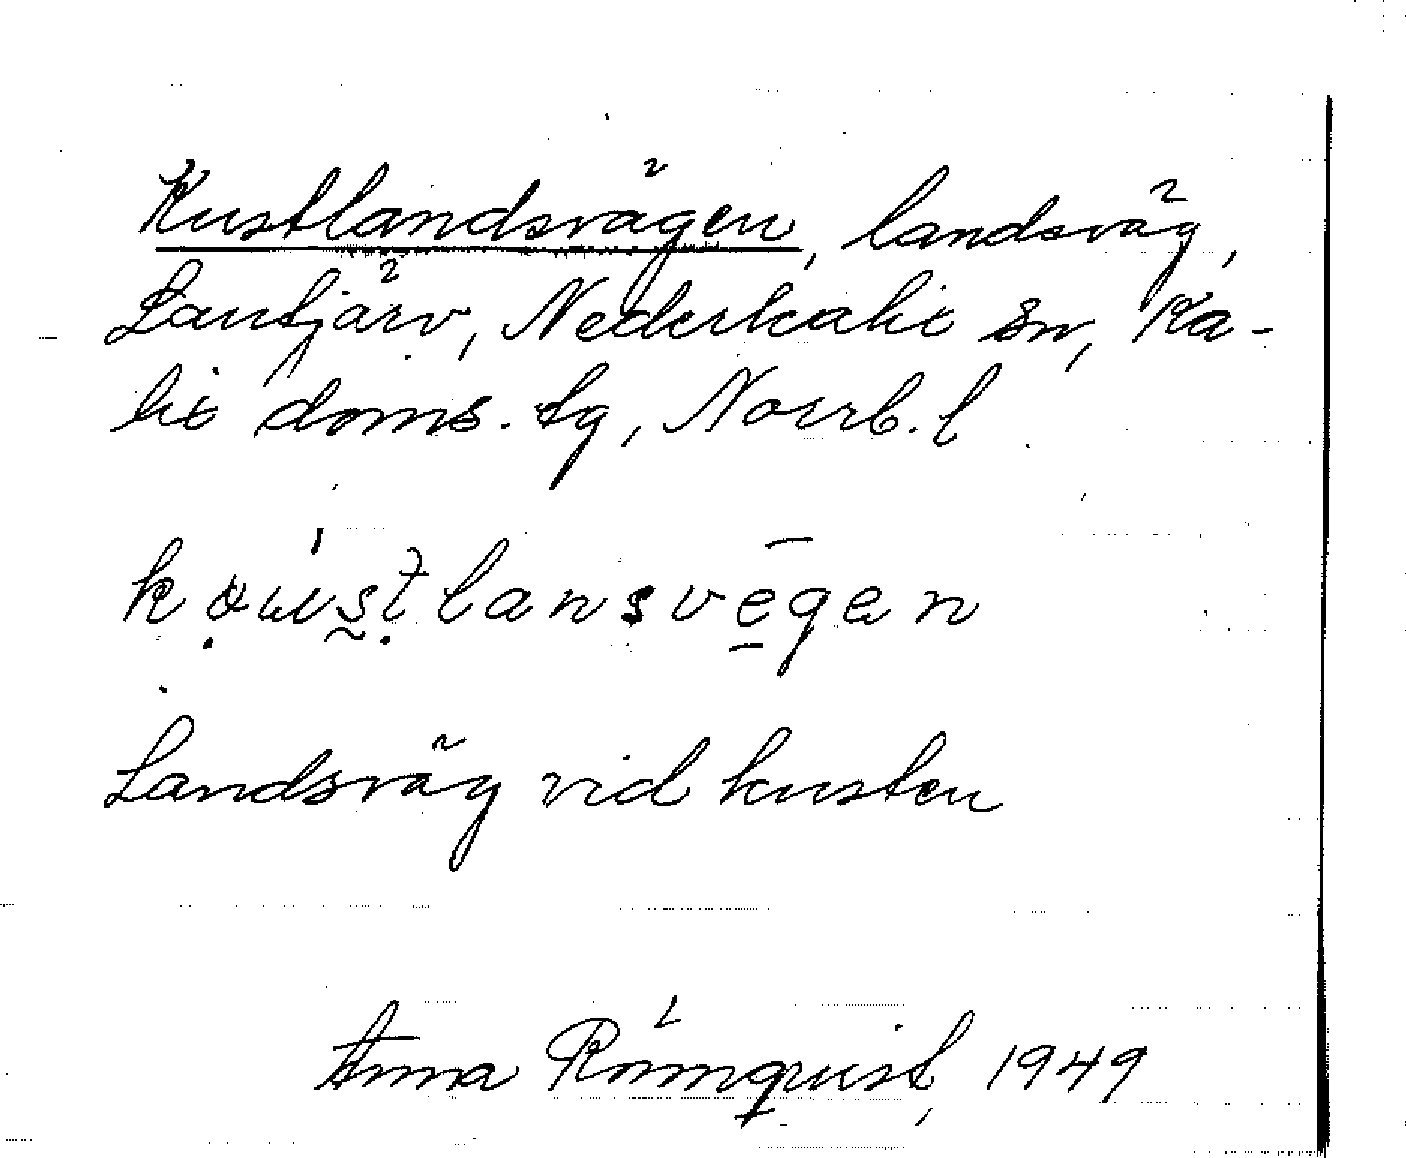 Kustlandsvägen, landsväg,
Lantjärv, Nederkalix sn, Ka-
lix doms. tg, Norrb. l
Landsväg vid kusten
Anna Rönnquist, 1949